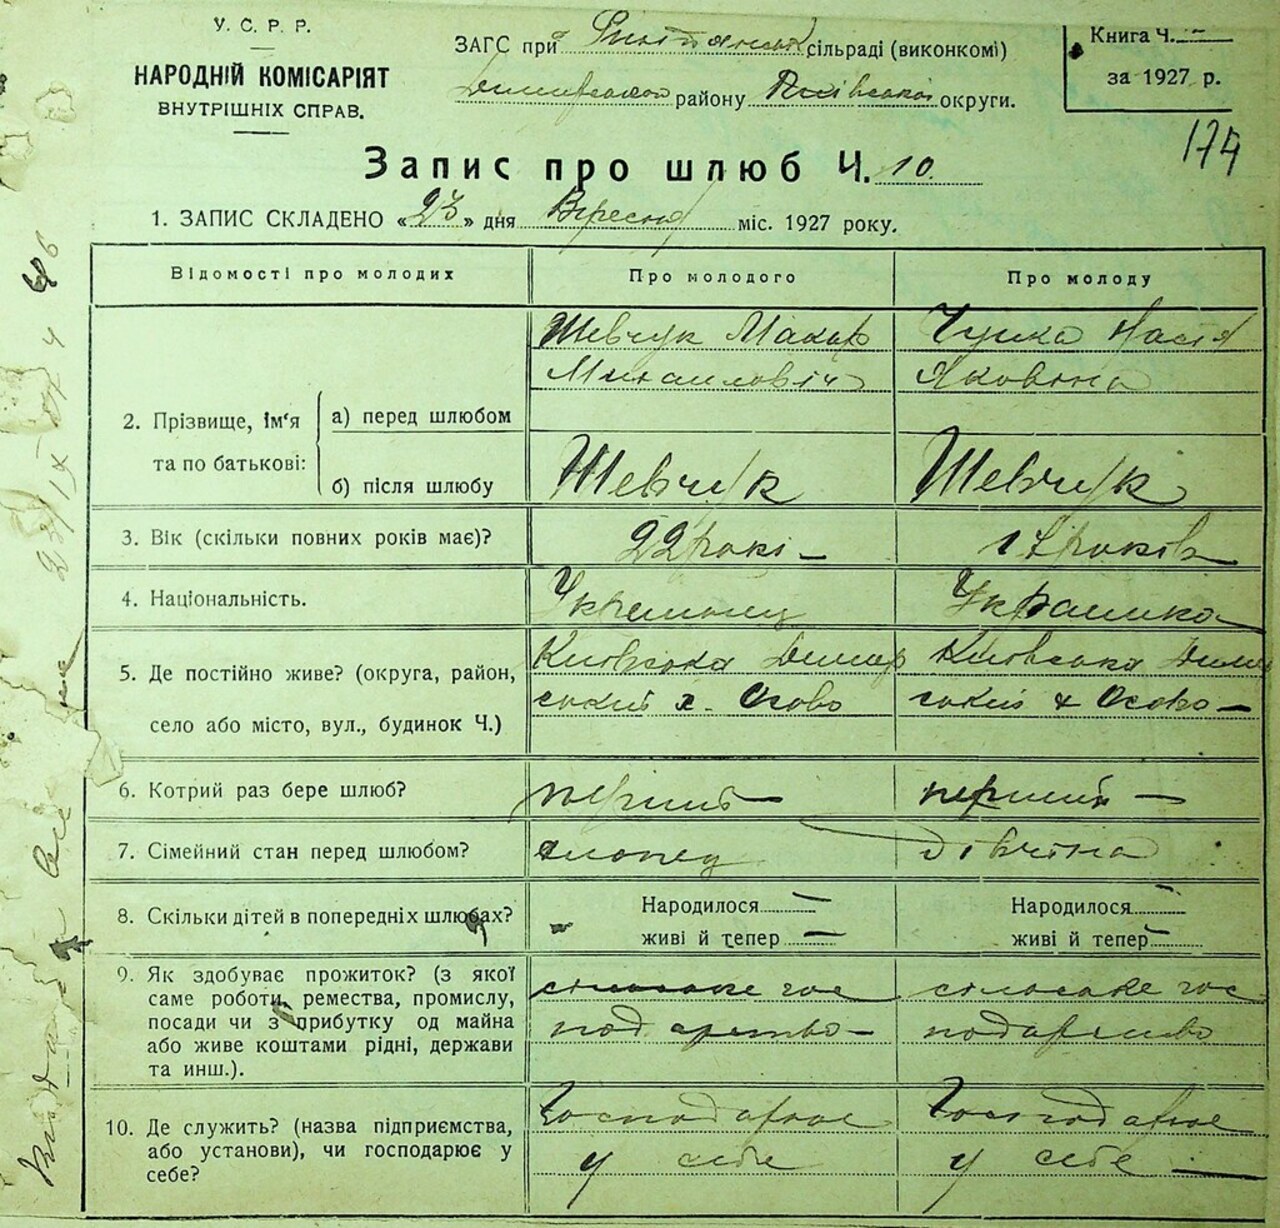 У. С. Р. Р.
НАРОДНІЙ КОМІСАРІЯТ
ВНУТРІШНІХ СПРАВ.
ЗАГС при сільраді (виконкомі)
Димерського району Київської округи.
Книга Ч. —
за 1927 р.
174
Запис про шлюб Ч. 10.
1. ЗАПИС СКЛАДЕНО «23» дня Вересня міс. 1927 року.
Відомості про молодих
Про молодого
Про молоду
2. Прізвище, ім‘я та по батькові:
а) перед шлюбом
Шевчук Макар
Михайлович
Чуйка Настя
Яковівна
б) після шлюбу
Шевчук
Шевчук
3. Вік (скільки повних років має)?
22 рокі —
17 років
4. Національність.
Украінец
Украінка
5. Де постійно живе? (округа, район,
село або місто, вул., будинок Ч.)
Київська Димер
ський х. Осово
Київська Диме
ський х Осово —
6. Котрий раз бере шлюб?
перший —
перший —
7. Сімейний стан перед шлюбом?
хлопец
дівчіна
8. Скільки дітей в попередніх шлюбах?
Народилося —
живі й тепер —
Народилося —
живі й тепер —
9. Як здобуває прожиток? (з якої
саме роботи, ремества, промислу,
посади чи з прибутку од майна
або живе коштами рідні, держави
та инш.).
сільське гос
подарство —
сільське гос
подарство
10. Де служить? (назва підприємства,
або установи), чи господарює у
себе?
Господарює
у себе
Господарює
у себе —